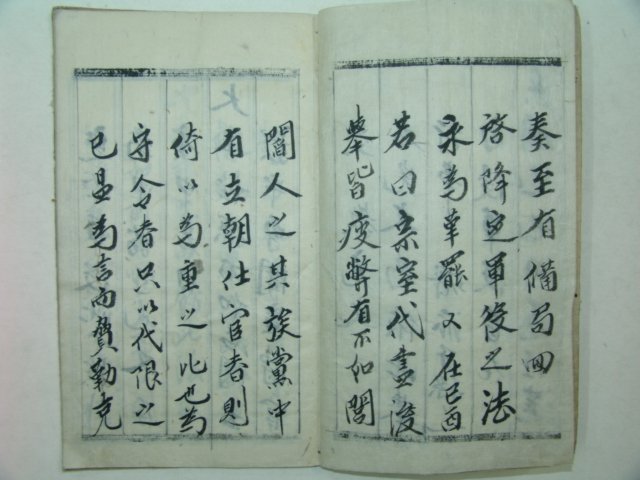 奏至有備局回
啓降定軍役之法
永爲革罷又在己酉
若曰宗室代盡後
擧皆疲弊有不如閭
閻人之其族黨中
有立朝仕官者則
倚以爲重之比也爲
守令者只以代限之
已昷爲言而贊勒充